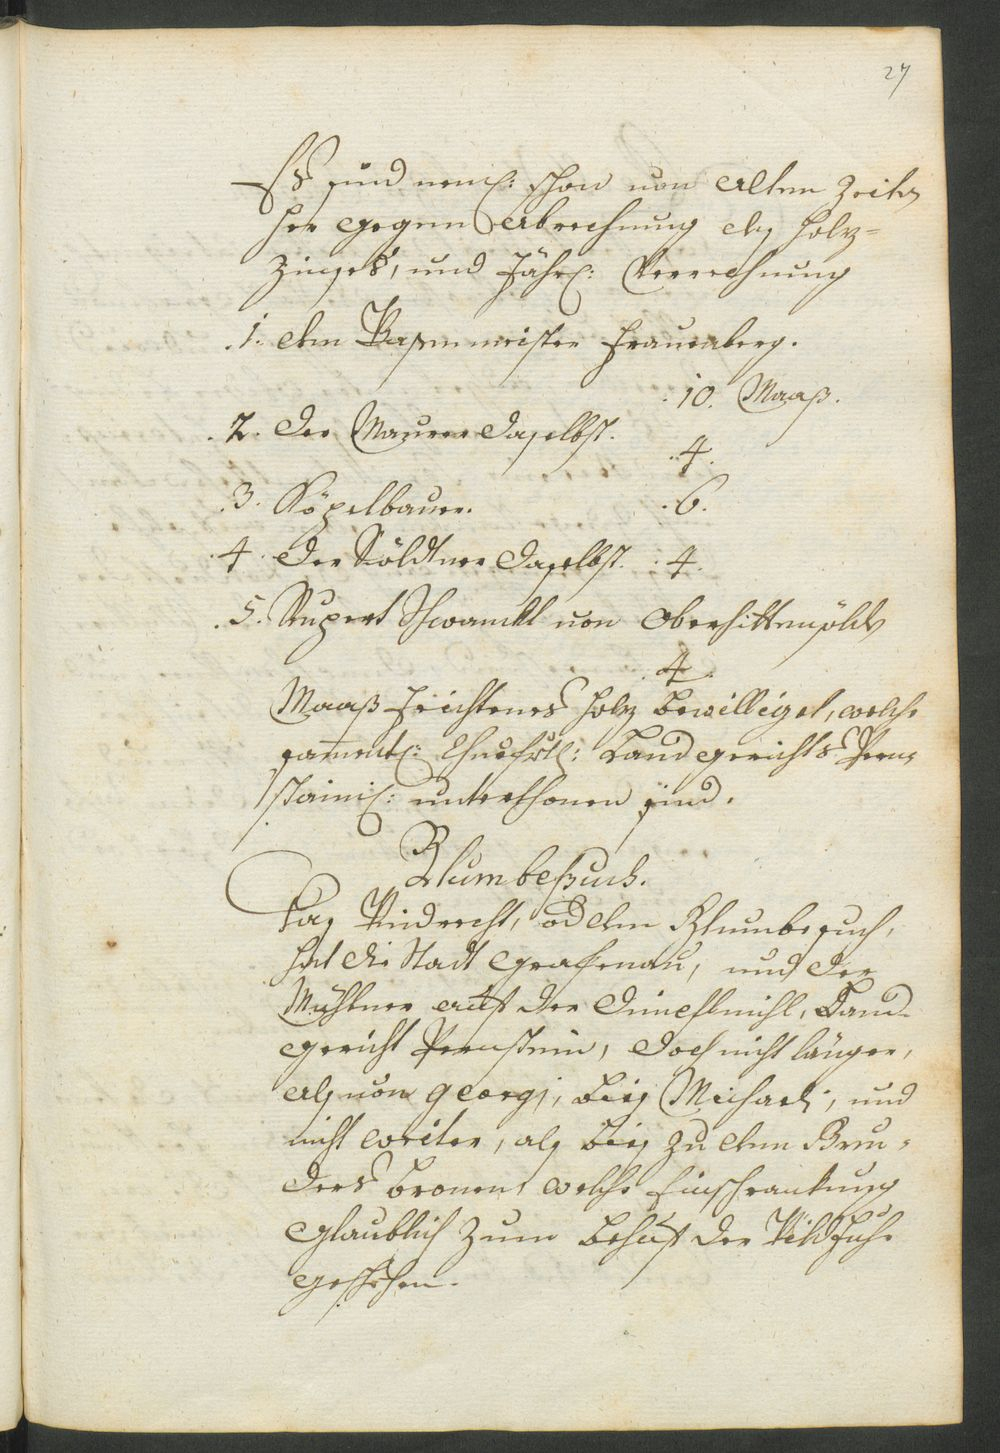 27
Es sind neml: schon von alten Zeiten
her gegen abrechnung des holz-
Zinses, und Jährl: Verrechnung
.1. dem Wasenmeister Frauenberg.
: 10. Maaß.
.2. der Maurer daselbst.
.4.
.3. Köpelbauer.
.6.
.4. der Söldtner daselbst. .4.
.5. Rupert Schwanckl von Oberhittensöldn
.4.
Maaß feichtenes holz bewilliget, welche
samentl: Churfrtl: Landgerichts Pern-
stainis: unterthonen sind.
Blumbesuch.
Das Waidrecht, od den Blumbesuch,
hat die Stadt Grafenau, und der
Mühlner auf der Landt-
gericht Pernstein, doch nicht länger,
als von Georgi, bis Michaeli, und
nicht weiter, als bis zu dem Bru-
ders bronen, welche Einschrankung
glaublich zum behuf der Wildfuhr
geschehen.